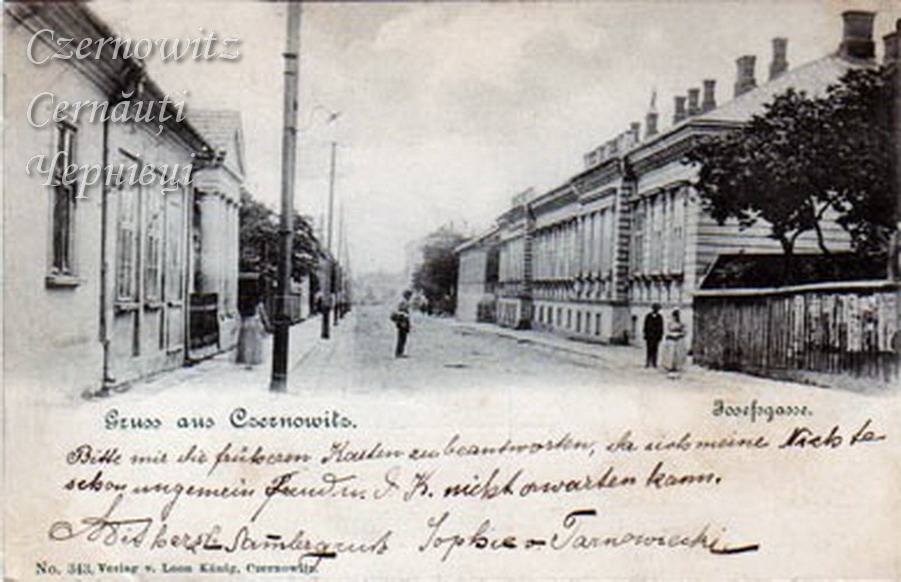 Czernowitz
Cernăuți
Чернівці
Gruss aus Czernowitz.
Josefsgasse.
Bitte mir die früheren Karten zu beantworten, da sich meine Nichte
schon ungemein freud u. I. K. nicht erwarten kann.
Mit herzl. Sophie v. Tarnowiecki
No. 343, Verlag v. Leon König, Czernowitz.